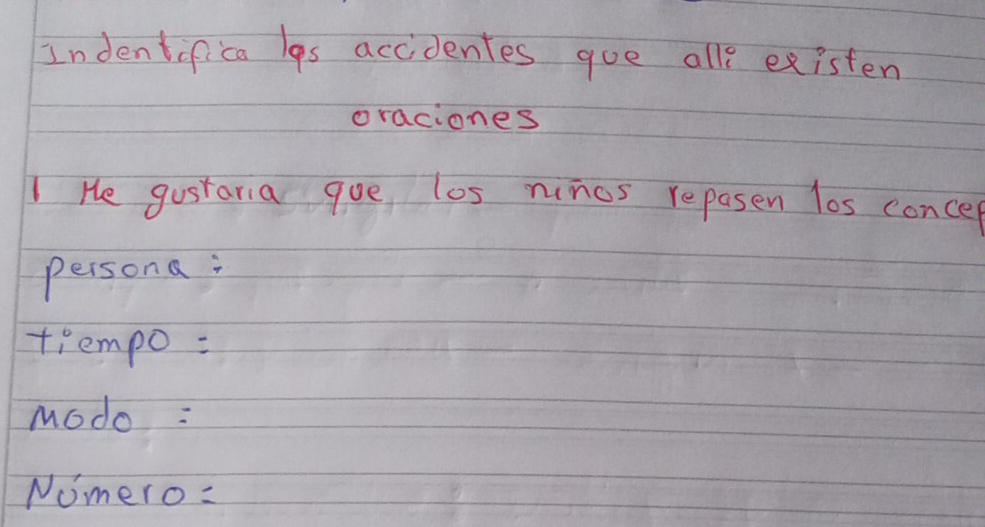 Indentifica los accidentes que alli existen
oraciones
1 Me gustaria que los niños repasen los concep
persona:
tiempo:
Modo :
Número: